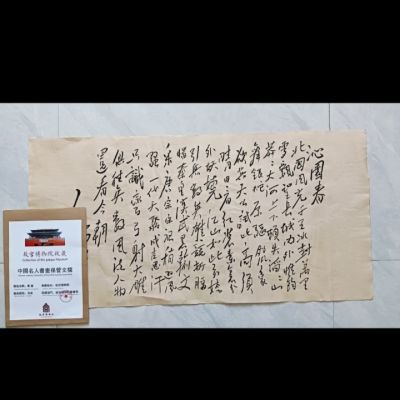 沁园春
北国风光千里冰封万里
雪飘望长城内外惟余
莽莽大河上下顿失滔滔山
舞银蛇原驰蜡象
欲与天公试比高须
晴日看红装素裹分
外妖娆江山如此多娇
引无数英雄竞折腰
惜秦皇汉武略输文
采唐宗宋祖稍逊风
骚一代天骄成吉思汗
只识弯弓射大雕
俱往矣数风流人物
还看今朝
故宫博物院收藏
Collection of the palace Museum
中國名人書畫保管文檔